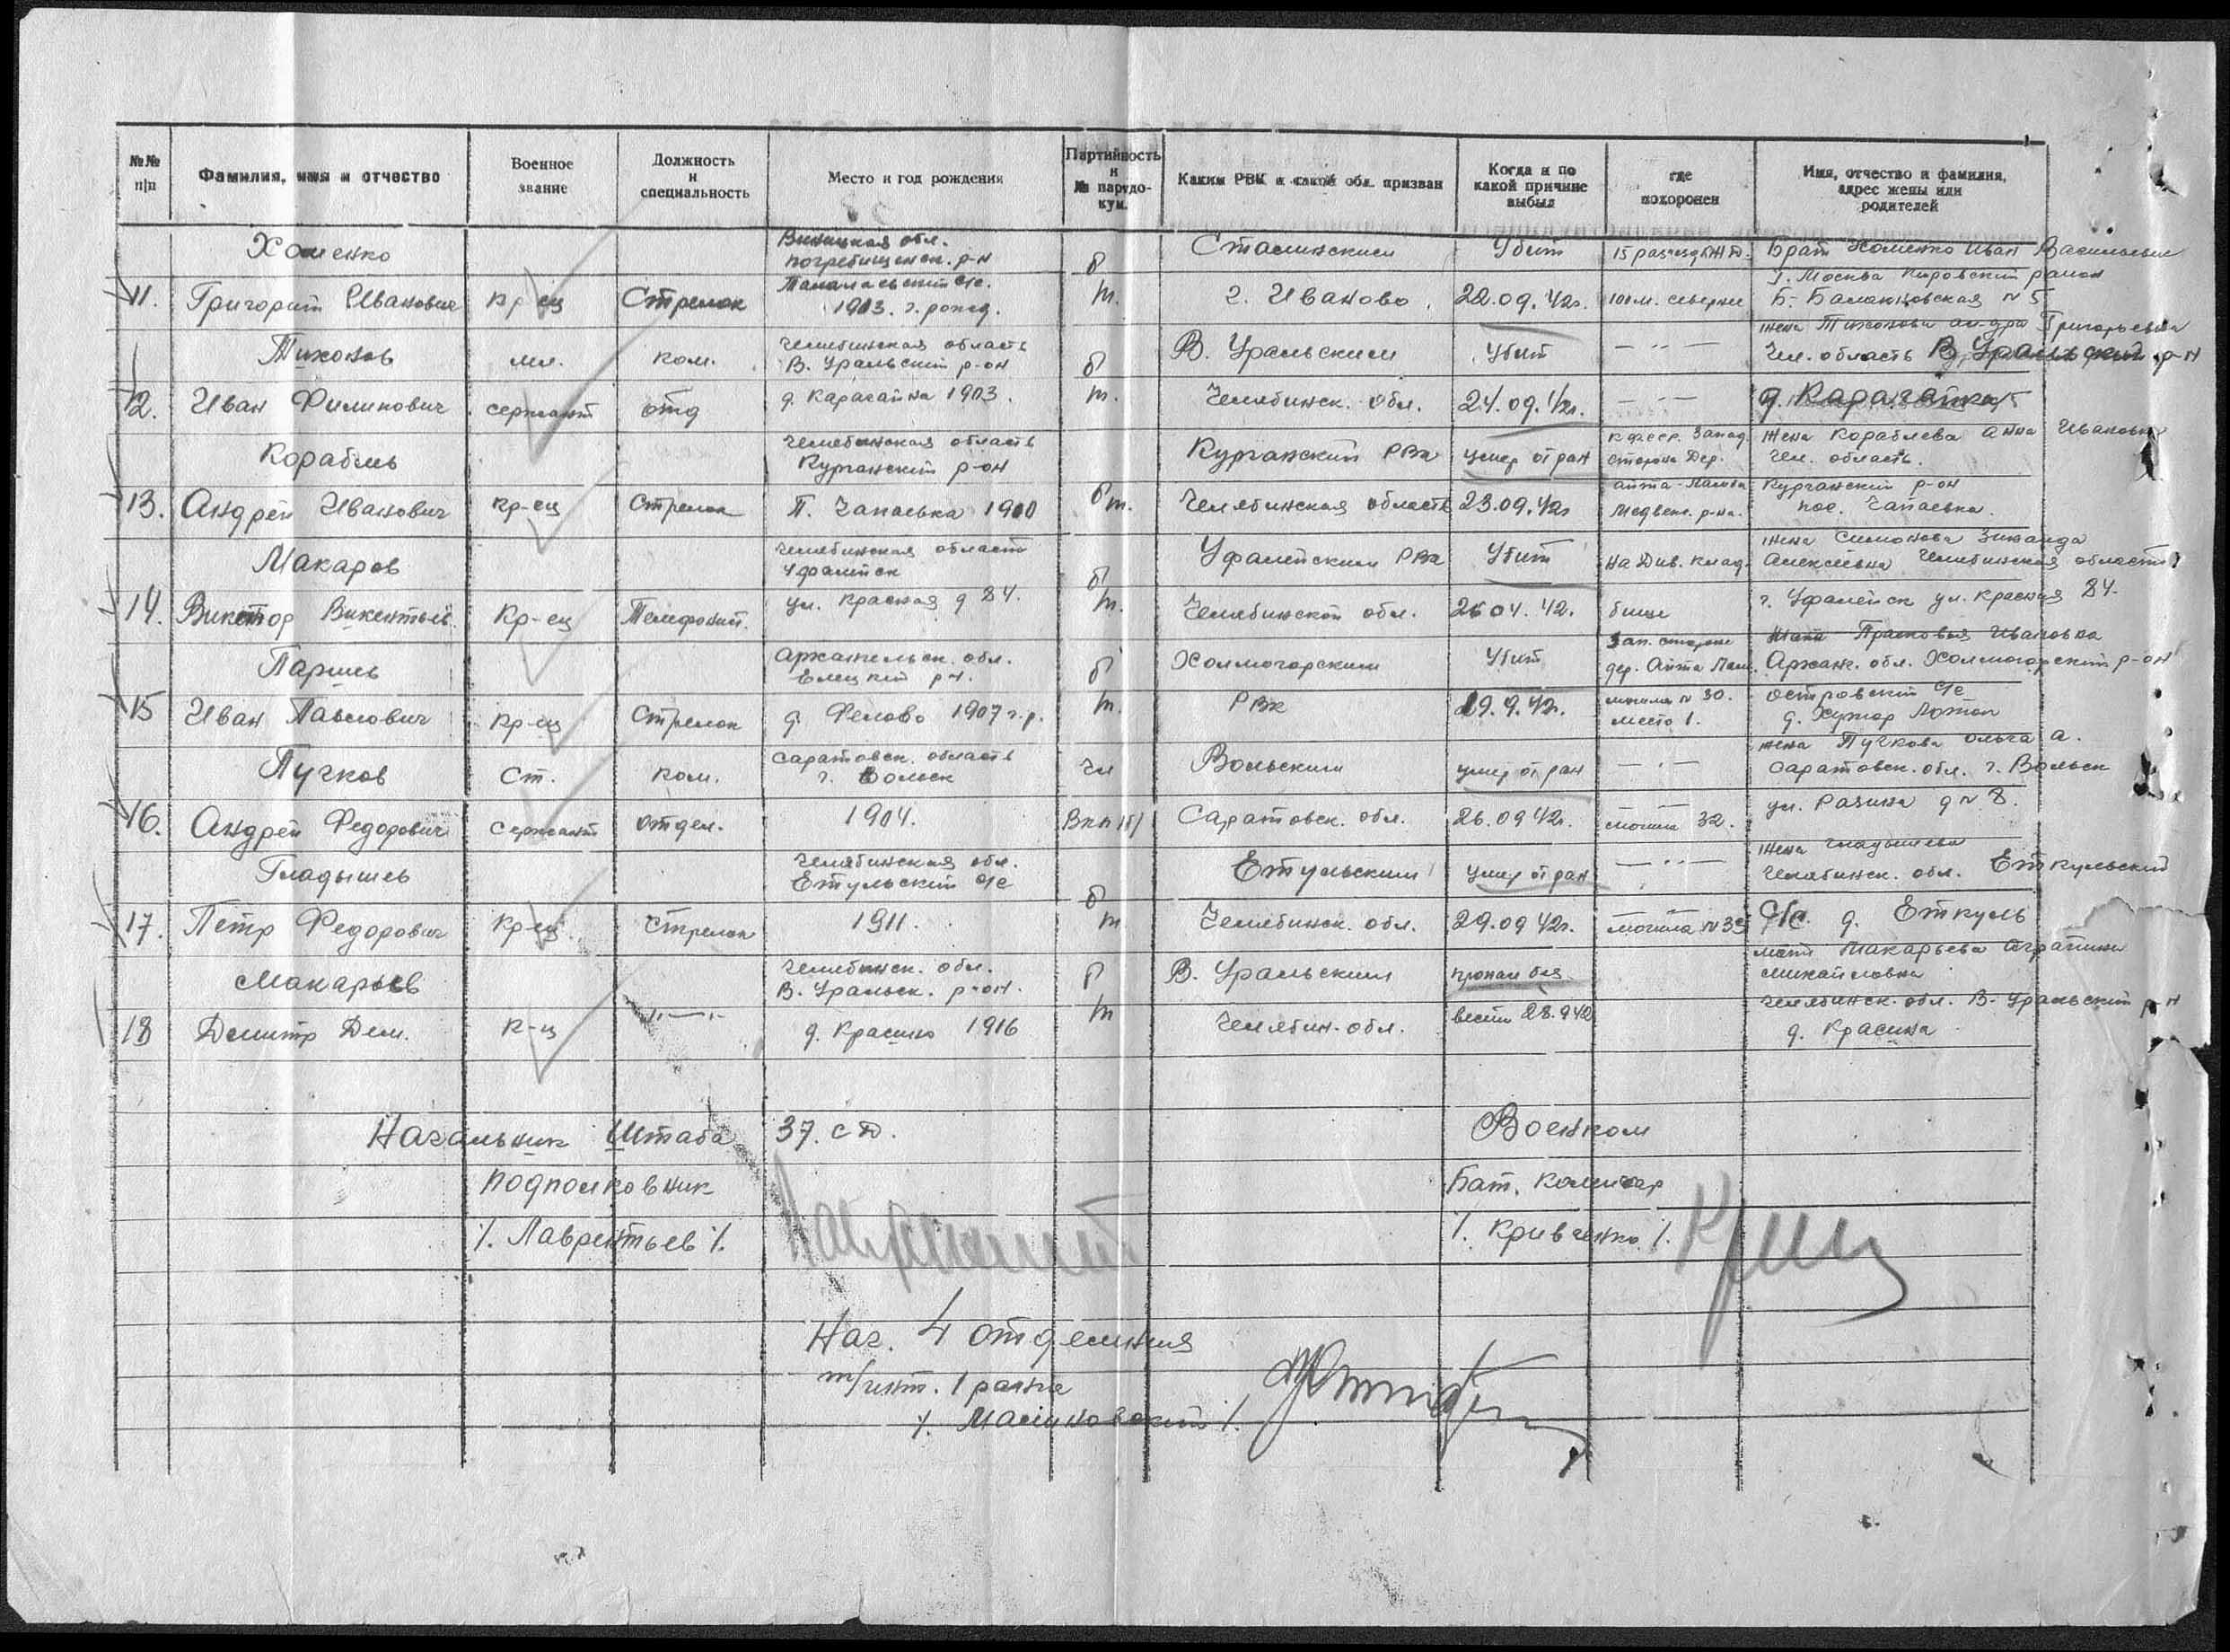 №№ п/п
Фамилия, имя и отчество
Военное звание
Должность и специальность
Место и год рождения
Партийность и № партдокум.
Каким РВК и какой обл. призван
Когда и по какой причине выбыл
где похоронен
Имя, отчество и фамилия, адрес жены или родителей
Хоменко Виницкая обл. б Сталинским Убит 15 разъезд Брат Хоменко Иван Васильевич
погребищенск. р-н
11. Григорий Иванович кр-ец Стрелок 1903. г. рожд. т. г. Иваново 22.09.42г. 100 м. севернее г. Москва Кировский район
№ 5
Тихонов мл. ком. Челябинская область б В. Уральским Убит — " — жена Тихонова Григорьевна
В. Уральский р-он Чел. область В Уральский р-н
12. Иван Филипович сержант отд д. Карагайка 1903. т. Челябинск. Обл. 24.09.42г. — " — д. Карагайка
Корабель Челябинская область Курганский РВк умер от ран Запад. жена Кораблева Анна Ивановна
Курганский р-он сторона Дер. Чел. область.
13. Андрей Иванович кр-ец Стрелок П. Чапаевка 1900 бт. Челябинская область 23.09.42г Курганский р-он
пос. Чапаевка.
Макаров Челябинская область б Уфалейским РВк Убит на Див. клад- жена Симонова Зинаида
Уфалейск Алексеевна Челябинская область
14. Виктор Викентьев. Кр-ец Телефонит. ул. Красная д 84. т. Челябинской обл. 26 04. 42. бище г. Уфалейск ул. Красная 84.
Паршев Архангельск. обл. б Холмогорским Убит Зап. стороне жена Прасковья Ивановна
Елецкий рн. дер. Арханг. обл. Холмогорский р-он
15 Иван Павлович кр-ец Стрелок д. 1907 г.р. т. РВК 29.9.42г. могила № 30. Островский с/с
место 1. д. Хутор
Пучков Ст. ком. Саратовск. область чл Вольским умер от ран — " — жена Пучкова Ольга А.
г. Вольск Саратовск. обл. г. Вольск
16. Андрей Федорович сержант отдел. 1904. Вкп/б/ Саратовск. обл. 26.09 42г. могила 32. ул. Разина д № 8.
Гладышев Челябинская обл. б Етульским умер от ран — " — жена Гладышева
Етульский с/с Челябинск. обл. Еткульский
17. Петр Федорович Кр-ец Стрелок 1911. т Челябинск. обл. 29.09 42г. могила № 33 с/с. д. Еткуль
Макарьев Челябинск. обл. б В. Уральским пропал без мать Макарьева Аграпина
В. Уральск. р-он. Михайловна
18 Дмитр Дем. к-ц — " — д. Красино 1916 т Челябин. обл. вести 28.9 42 Челябинск. обл. В. Уральский р-н
д. Красина
Начальник Штаба 37. сд. Военком
подполковник Бат. комисар
/. Лаврентьев /. /. Кривченко /.
Нач. 4 отделения
т/инт. 1 ранга
/. Малиновский /.